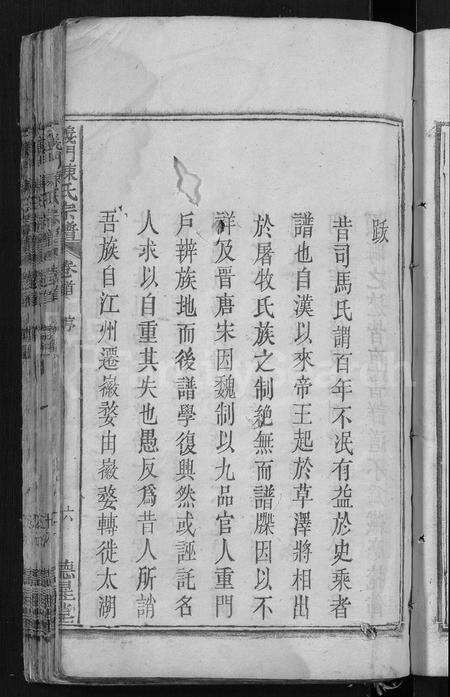 跋
昔司馬氏謂百年不泯有益於史乘者
譜也自漢以來帝王起於草澤將相出
於屠牧氏族之制䫉無而譜牒因以不
詳及晋唐宋因魏制以九品官人重門
戶辨族地而後譜學復興然或誣託名
人求以自重其失也愚反為昔人所誚
吾族自江州遷徽婺由徽婺轉徙太湖
義門陳氏宗譜
卷首
序
六
德星堂